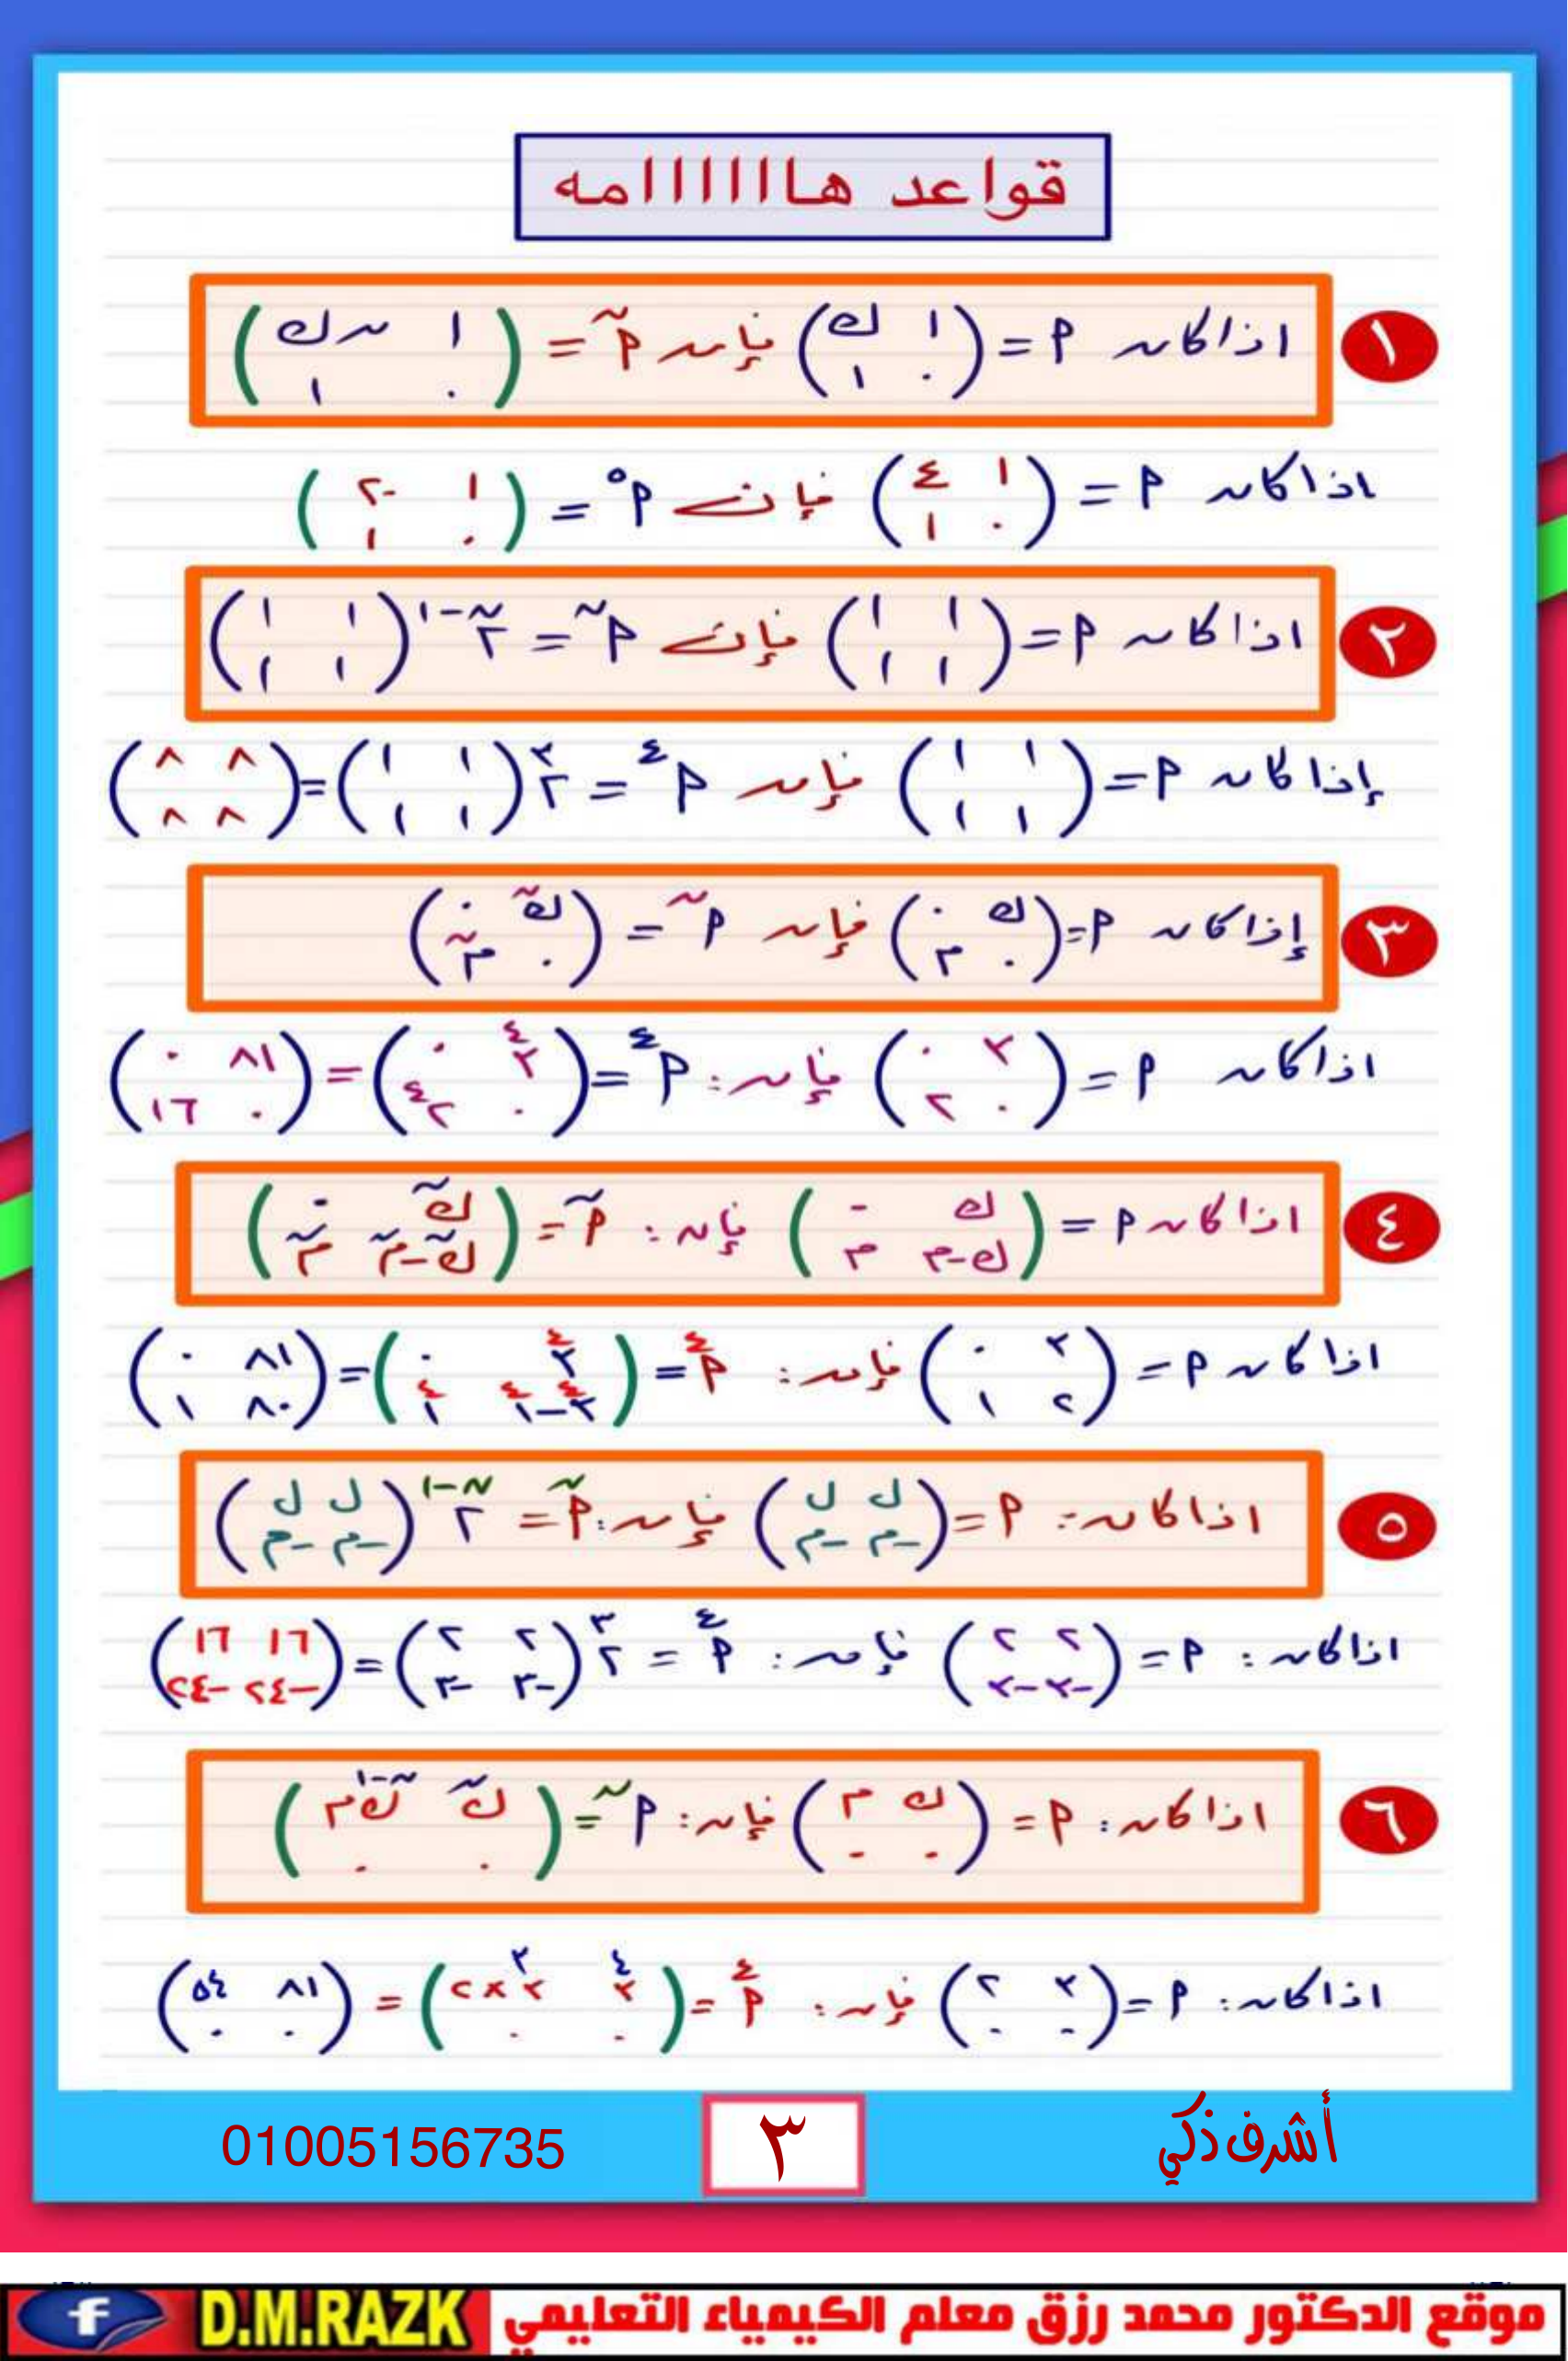 قواعد هاااااامه
١ اذا كان P = (١ ك ، ٠ ١) فإن Pⁿ = (١ ن ك ، ٠ ١)
اذا كان P = (١ ٤ ، ٠ ١) فإن P^٥ = (١ ٢٠ ، ٠ ١)
٢ اذا كان P = (١ ١ ، ١ ١) فإن P^ن = ٢^(ن-١) (١ ١ ، ١ ١)
إذا كان P = (١ ١ ، ١ ١) فإن P^٤ = ٢^٣ (١ ١ ، ١ ١) = (٨ ٨ ، ٨ ٨)
٣ إذا كان P = (ك ٠ ، ٠ م) فإن P^ن = (ك^ن ٠ ، ٠ م^ن)
اذا كان P = (٣ ٠ ، ٠ ٢) فإن : P^٤ = (٣^٤ ٠ ، ٠ ٢^٤) = (٨١ ٠ ، ٠ ١٦)
٤ اذا كان P = (ك ٠ ، ك-م م) فإن : P^ن = (ك^ن ٠ ، ك^ن-م^ن م^ن)
اذا كان P = (٣ ٠ ، ٢ ١) فإن : P^٤ = (٣^٤ ٠ ، ٣^٤-١^٤ ١^٤) = (٨١ ٠ ، ٨٠ ١)
٥ اذا كان : P = (ل ل ، -م -م) فإن : P^ن = ٢^(ن-١) (ل ل ، -م -م)
اذا كان : P = (٢ ٢ ، -٣ -٣) فإن : P^٤ = ٢^٣ (٢ ٢ ، -٣ -٣) = (١٦ ١٦ ، -٢٤ -٢٤)
٦ اذا كان : P = (ك م ، ٠ ٠) فإن : P^ن = (ك^ن ك^(ن-١) م ، ٠ ٠)
اذا كان : P = (٣ ٢ ، ٠ ٠) فإن : P^٤ = (٣^٤ ٣^٣×٢ ، ٠ ٠) = (٨١ ٥٤ ، ٠ ٠)
أشرف ذكي ٣ 01005156735
موقع الدكتور محمد رزق معلم الكيمياء التعليمي D.M.RAZK f